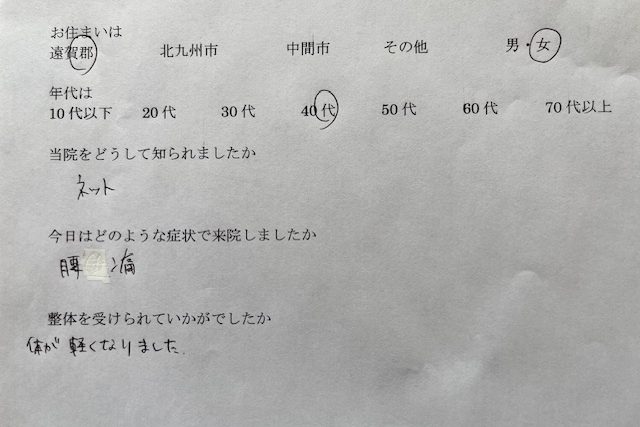 お住まいは
遠賀郡 北九州市 中間市 その他 男・女
年代は
10代以下 20代 30代 40代 50代 60代 70代以上
当院をどうして知られましたか
ネット
今日はどのような症状で来院しましたか
腰痛
整体を受けられていかがでしたか
体が軽くなりました.